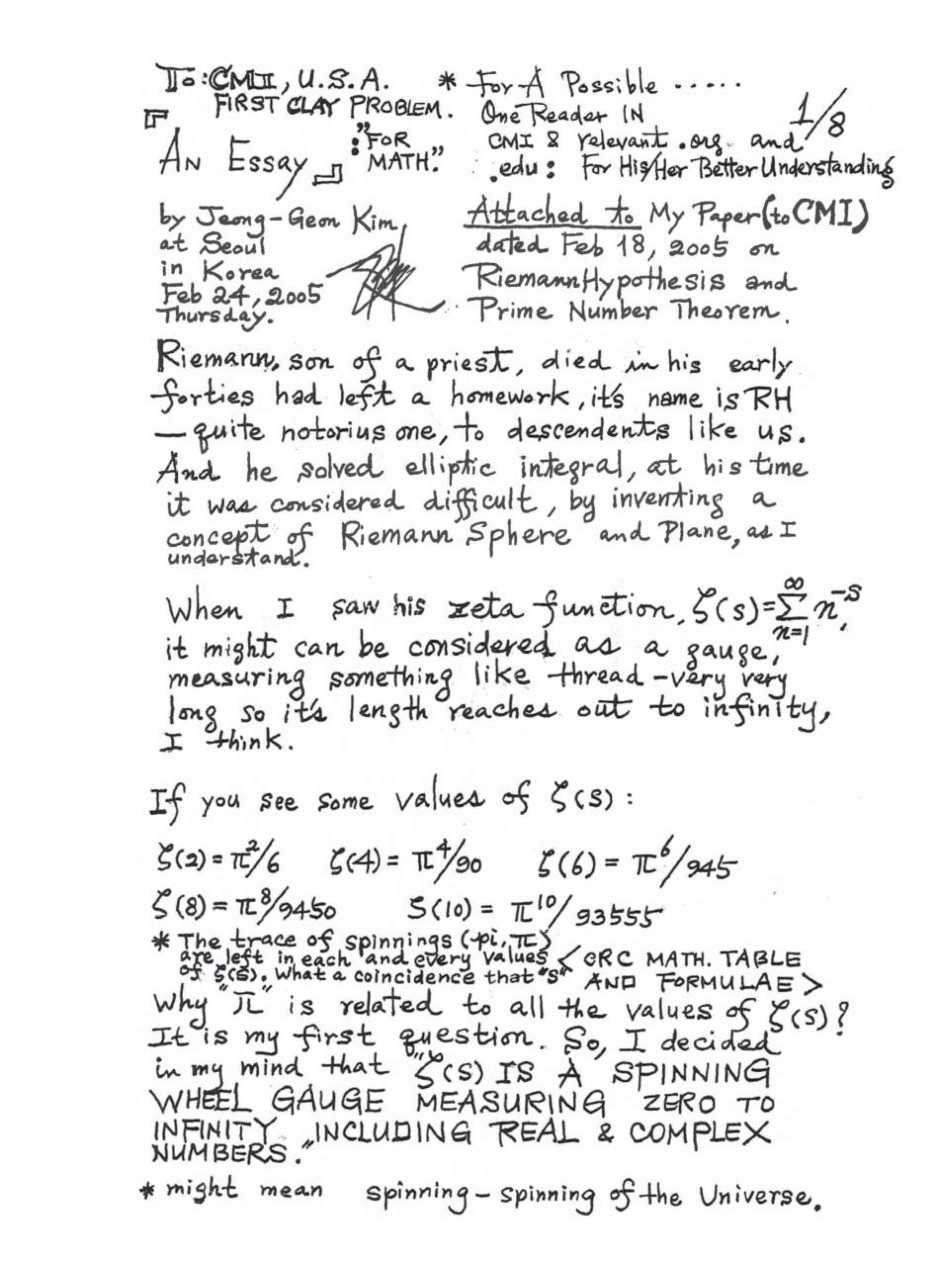 To: CMI, U.S.A.
FIRST CLAY PROBLEM.
『
AN ESSAY』: "FOR MATH."
* For A Possible .....
One Reader IN
CMI & relevant .org. and
.edu : For His/Her Better Understanding
1/8
by Jeong-Geon Kim,
at Seoul
in Korea
Feb 24, 2005
Thursday.
Attached to My Paper (to CMI)
dated Feb 18, 2005 on
Riemann Hypothesis and
Prime Number Theorem.
Riemann, son of a priest, died in his early
forties had left a homework, it's name is RH
— quite notorius one, to descendents like us.
And he solved elliptic integral, at his time
it was considered difficult, by inventing a
concept of Riemann Sphere and Plane, as I
understand.
When I saw his zeta function, ζ(s)=∑_{n=1}^{∞} n^{-s},
it might can be considered as a gauge,
measuring something like thread - very very
long so it's length reaches out to infinity,
I think.
If you see some values of ζ(s) :
ζ(2) = π²/6 ζ(4) = π⁴/90 ζ(6) = π⁶/945
ζ(8) = π⁸/9450 ζ(10) = π¹⁰/93555
* The trace of spinnings (pi, π)
are left in each and every values
of ζ(s). What a coincidence that "S"
< CRC MATH. TABLE
AND FORMULAE >
Why "π" is related to all the values of ζ(s)?
It is my first question. So, I decided
in my mind that "ζ(s) IS A SPINNING
WHEEL GAUGE MEASURING ZERO TO
INFINITY, INCLUDING REAL & COMPLEX
NUMBERS."
* might mean spinning - spinning of the Universe.